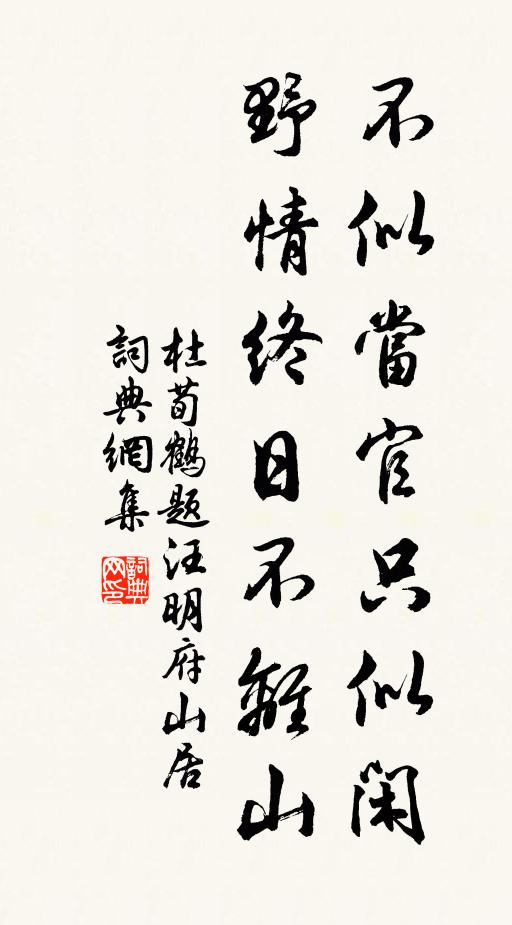 不似當官只似閑
野情終日不離山
杜荀鶴题汪明府山居
詞典網集
詞典网印